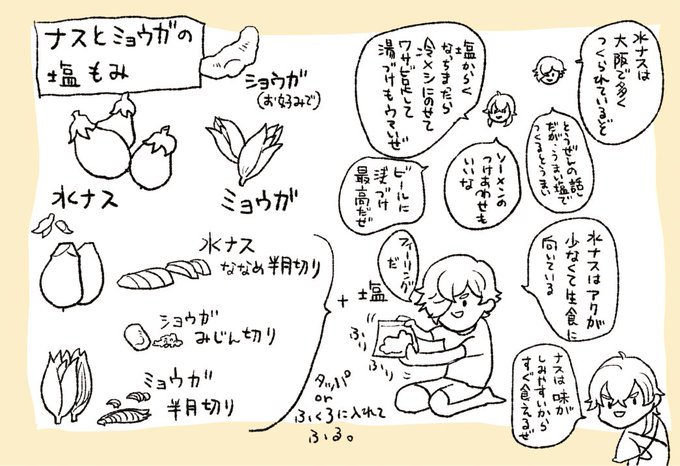 ナスとミョウガの
塩もみ
ショウガ
(お好みで)
水ナス
ミョウガ
水ナス
ななめ半月切り
ショウガ
みじん切り
ミョウガ
半月切り
+塩
タッパ
or
ふくろに入れて
ふる。
フィーリング
だ
ふり
ふり
水ナスは
大阪で多く
つくられているぞ
塩からく
なっちまったら
冷メシにのせて
ワサビ足して
湯づけもウマいぜ
とうぜんの話
だが、うまい塩で
つくるとうまい
ソーメンの
つけあわせも
いいな
ビールに
浅づけ
最高だぜ
水ナスはアクが
少なくて生食に
向いている
ナスは味が
しみやすいから
すぐ食えるぜ